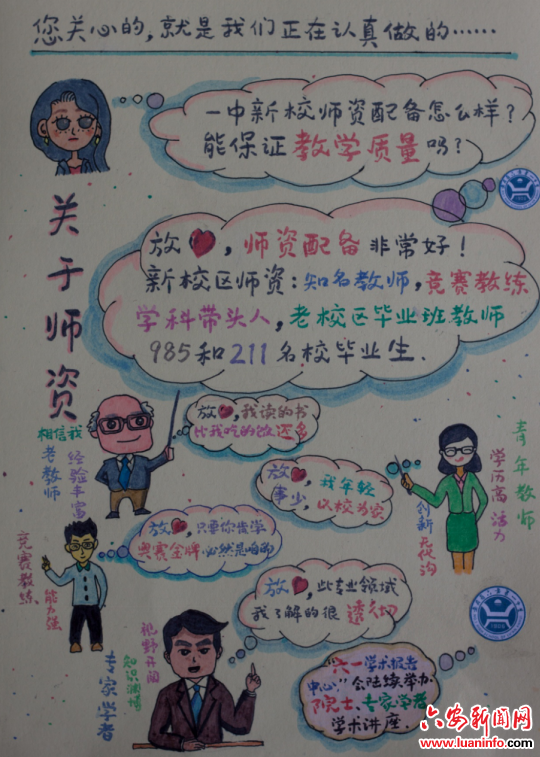 您关心的,就是我们正在认真做的……
一中新校师资配备怎么样?
能保证教学质量吗?
关于师资
放❤,师资配备非常好!
新校区师资:知名教师,竞赛教练
学科带头人,老校区毕业班教师
985和211名校毕业生.
相信我
老教师
经验丰富
放❤,我读的书
比我吃的饭还多
放❤,我年轻
事少,以校为家
青年教师
学历高活力
创新无代沟
放❤,只要你肯学
奥赛金牌必然是咱的
竞赛教练
能力强
放❤,此专业领域
我了解的很透彻
视野开阔
知识渊博
专家学者
"六一学术报告
中心"会陆续举办
院士、专家学者
学术讲座.
六安新闻网
www.luaninfo.com